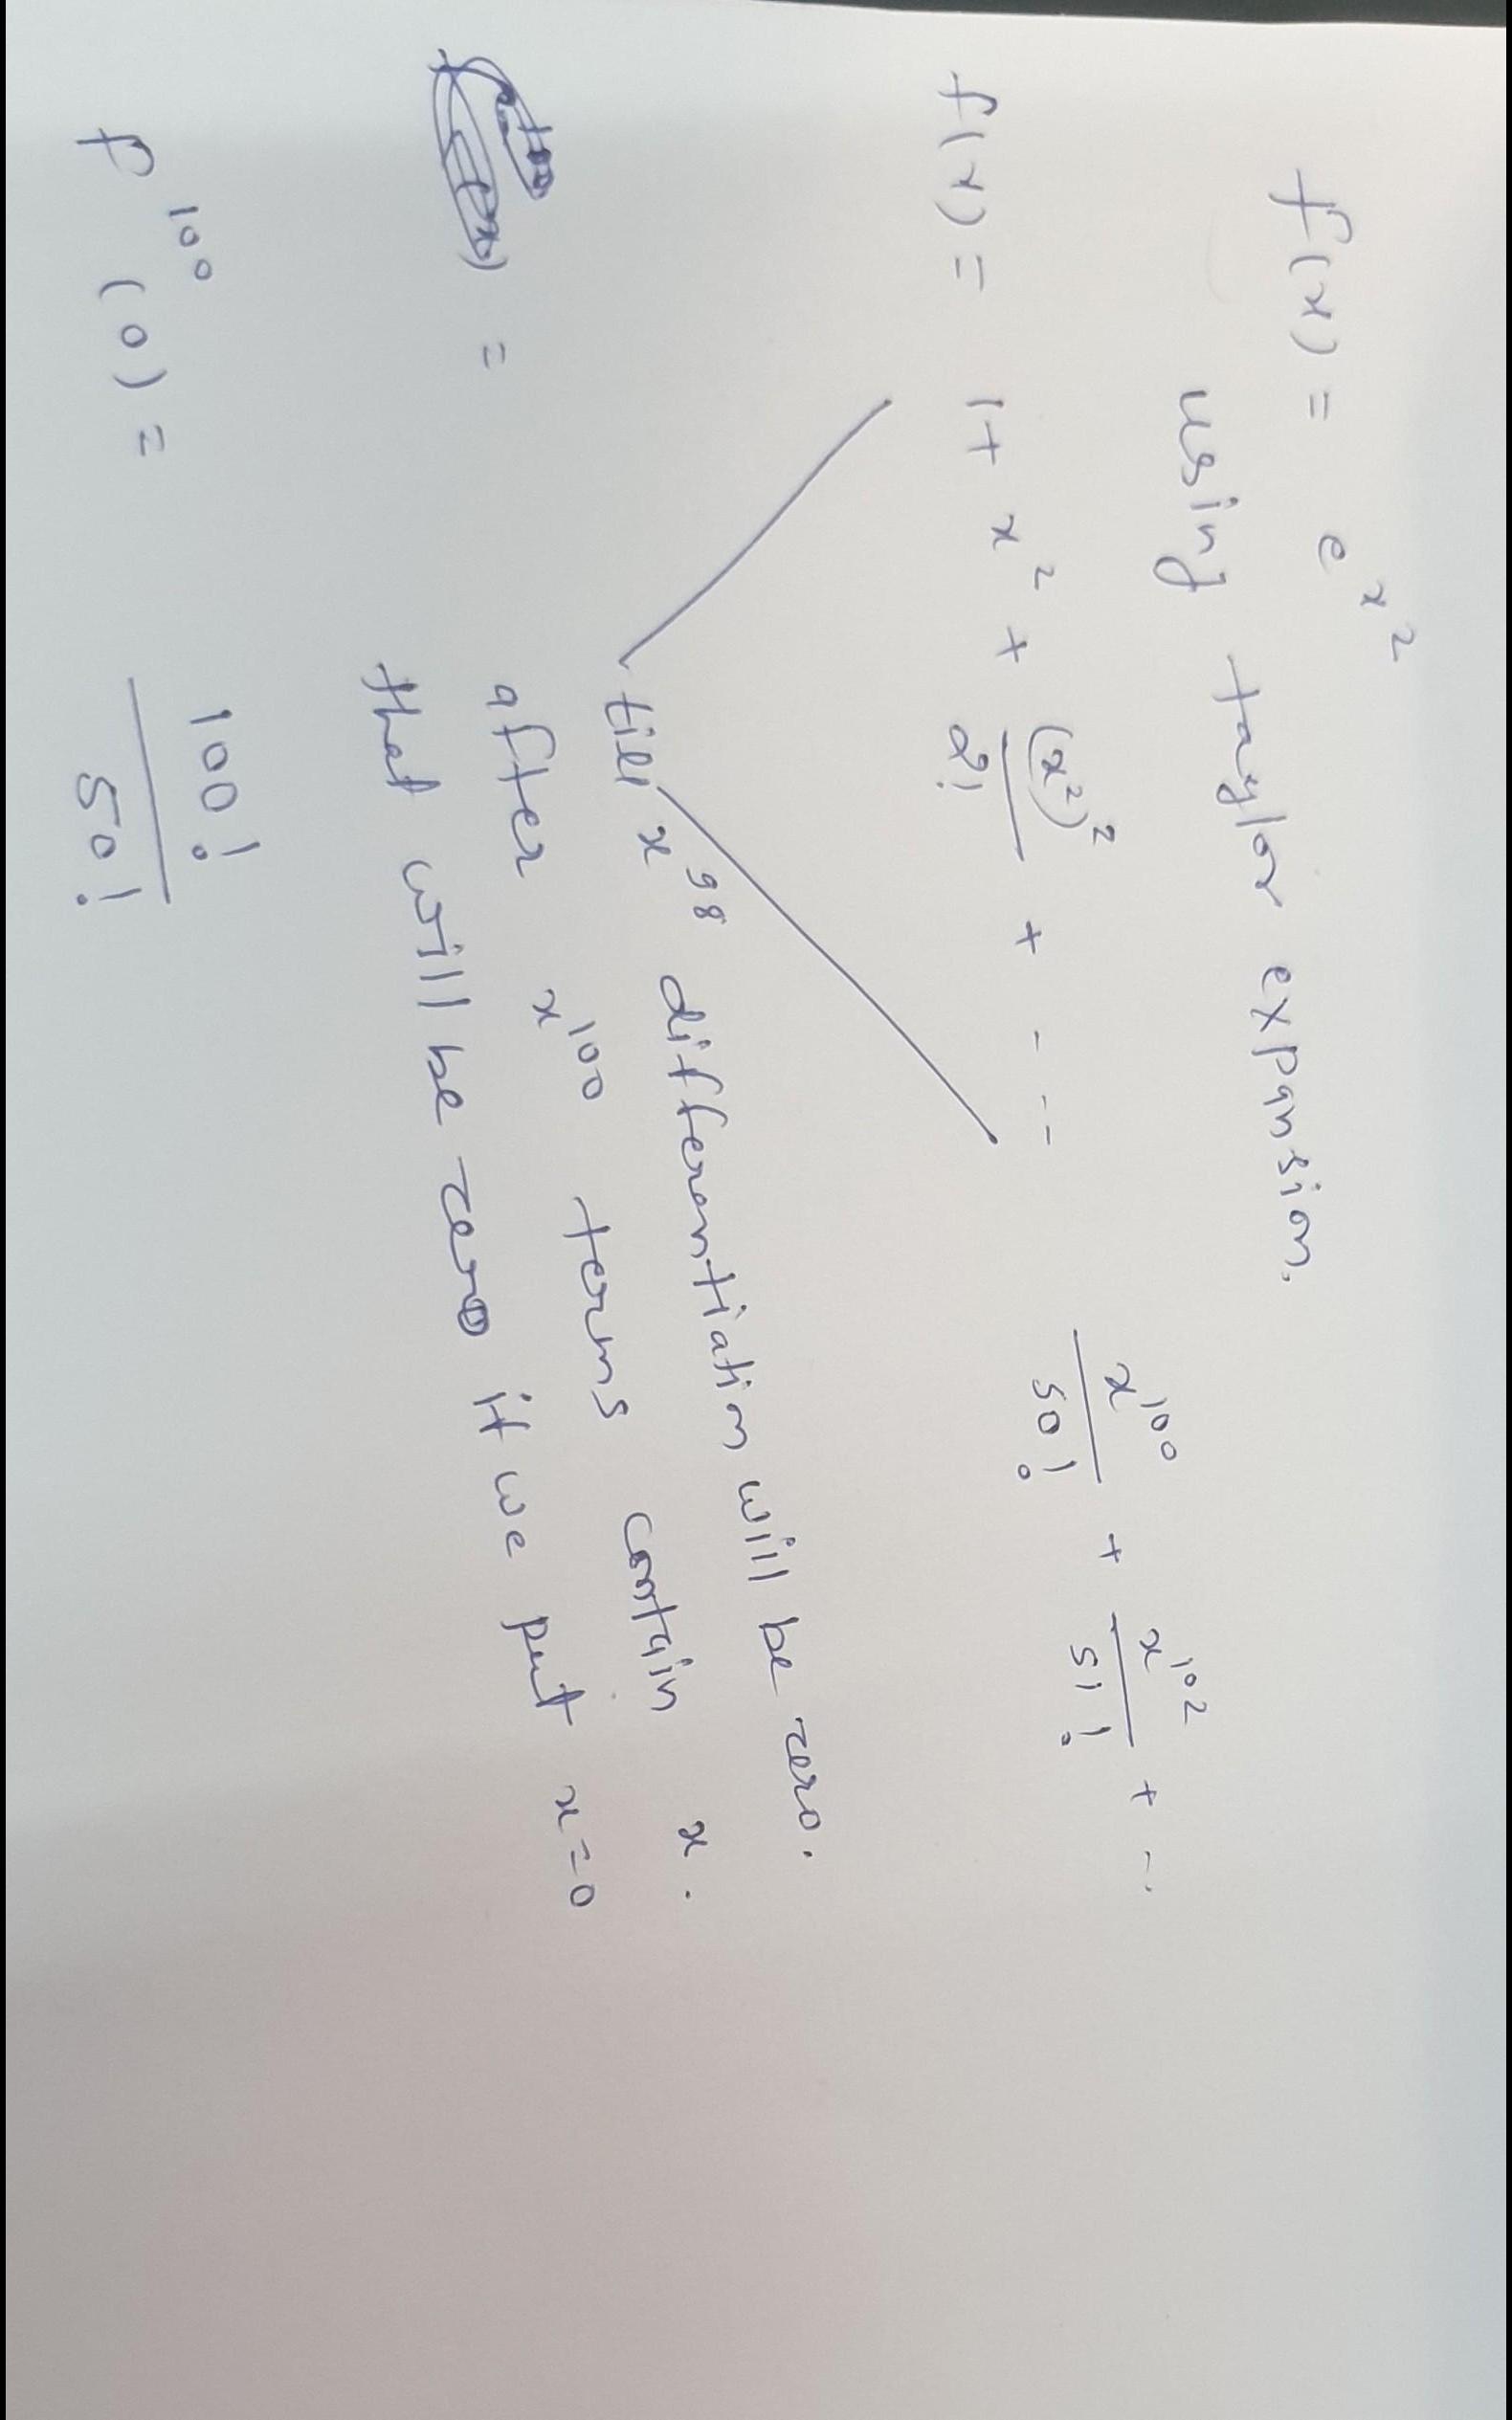 f(x) = e^x^2
using taylor expansion.
f(x) = 1 + x^2 + (x^2)^2/2! + - - - x^100/50! + x^102/51! + ...
till x^98 differentiation will be zero.
after x^100 terms contain x.
that will be zero if we put x=0
=
f^100 (0) = 100!/50!